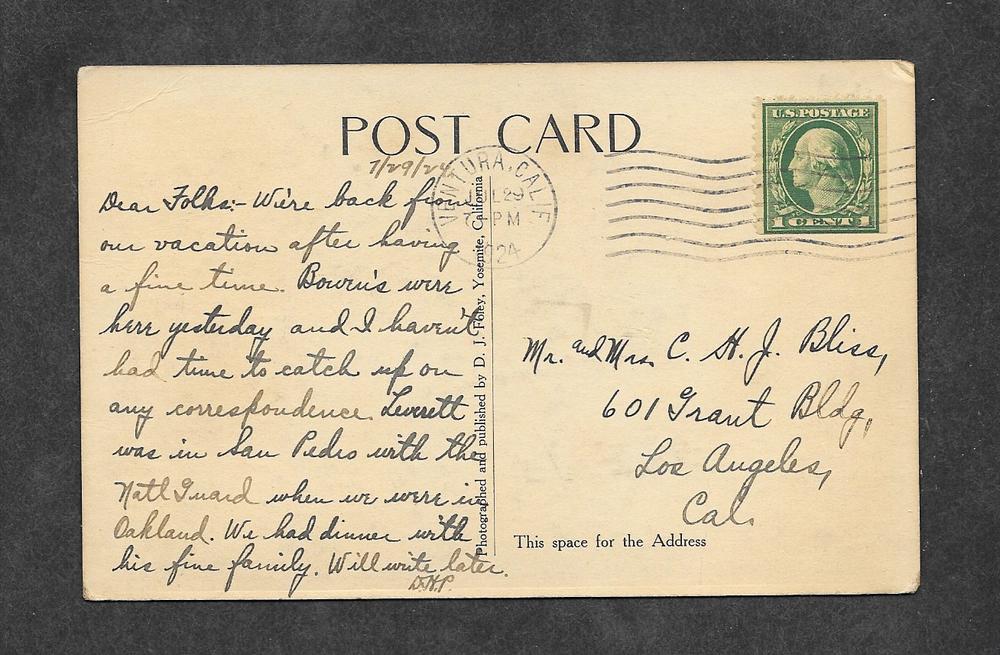 POST CARD
U.S. POSTAGE
1 CENT 1
VENTURA, CALIF.
JUL 29
7 - PM
1924
7/29/24
Dear Folks:- We're back from
our vacation after having
a fine time. Bowen's were
here yesterday and I haven't
had time to catch up on
any correspondence. Leverett
was in San Pedro with the
Natl Guard when we were in
Oakland. We had dinner with
his fine family. Will write later.
D.H.P.
Photographed and published by D. J. Foley, Yosemite, California
Mr. and Mrs. C. H. J. Bliss,
601 Grant Bldg,
Los Angeles,
Cal.
This space for the Address